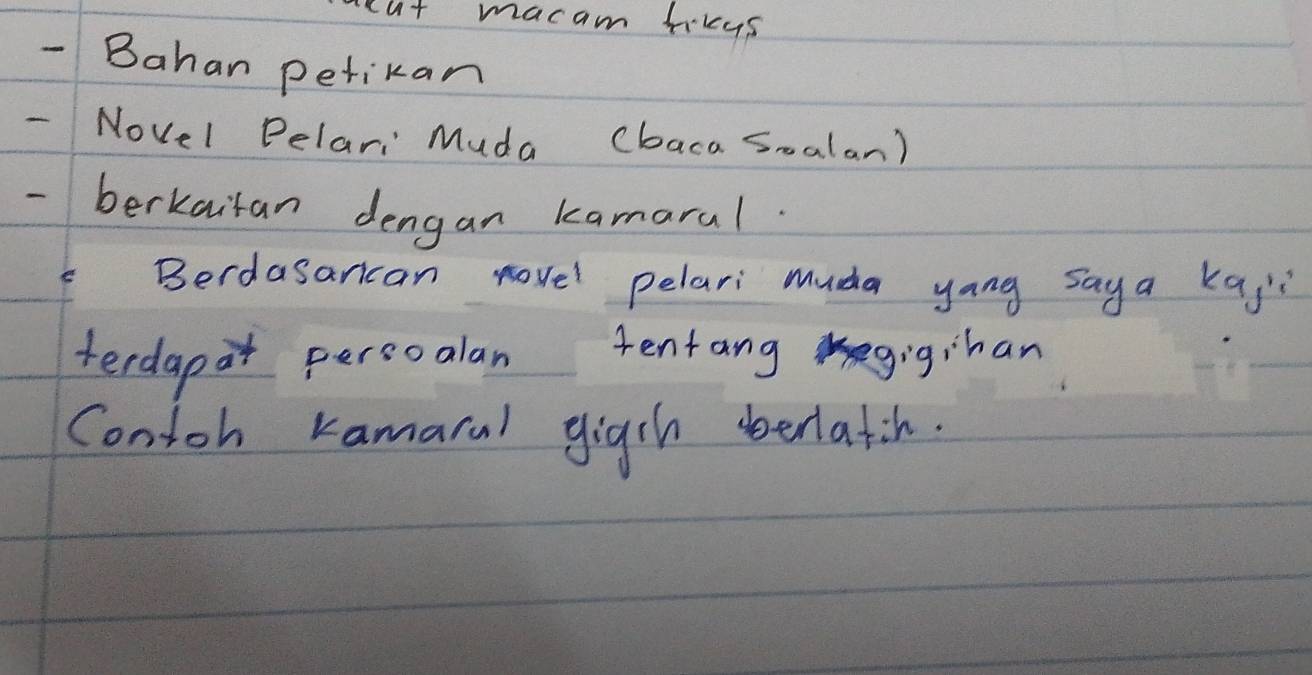 macam tikus
- Bahan petikan
- Novel Pelari Muda (baca Soalan)
- berkaitan dengan kamarul.
Berdasarkan novel pelari muda yang saya kaji
terdapat persoalan tentang kegigihan.
Contoh kamarul gigih berlatih.